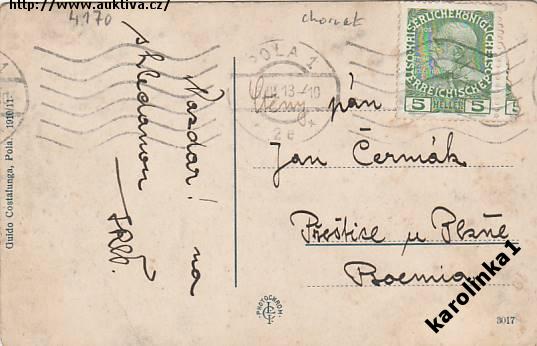 http://www.auktiva.cz/
4170
chorvat
POLA 1
13-10
2e
KAISERLICHE KÖNIGLICHE
ÖSTERREICHISCHE
5 HELLER 5
Nazdar! na
shledanou
Ctěný pán
Jan Čermák
Přeštice u Plzně
Boemia
Guido Costalunga, Pola. 1910/11
PHOTOCHROM
3017
karolinka1